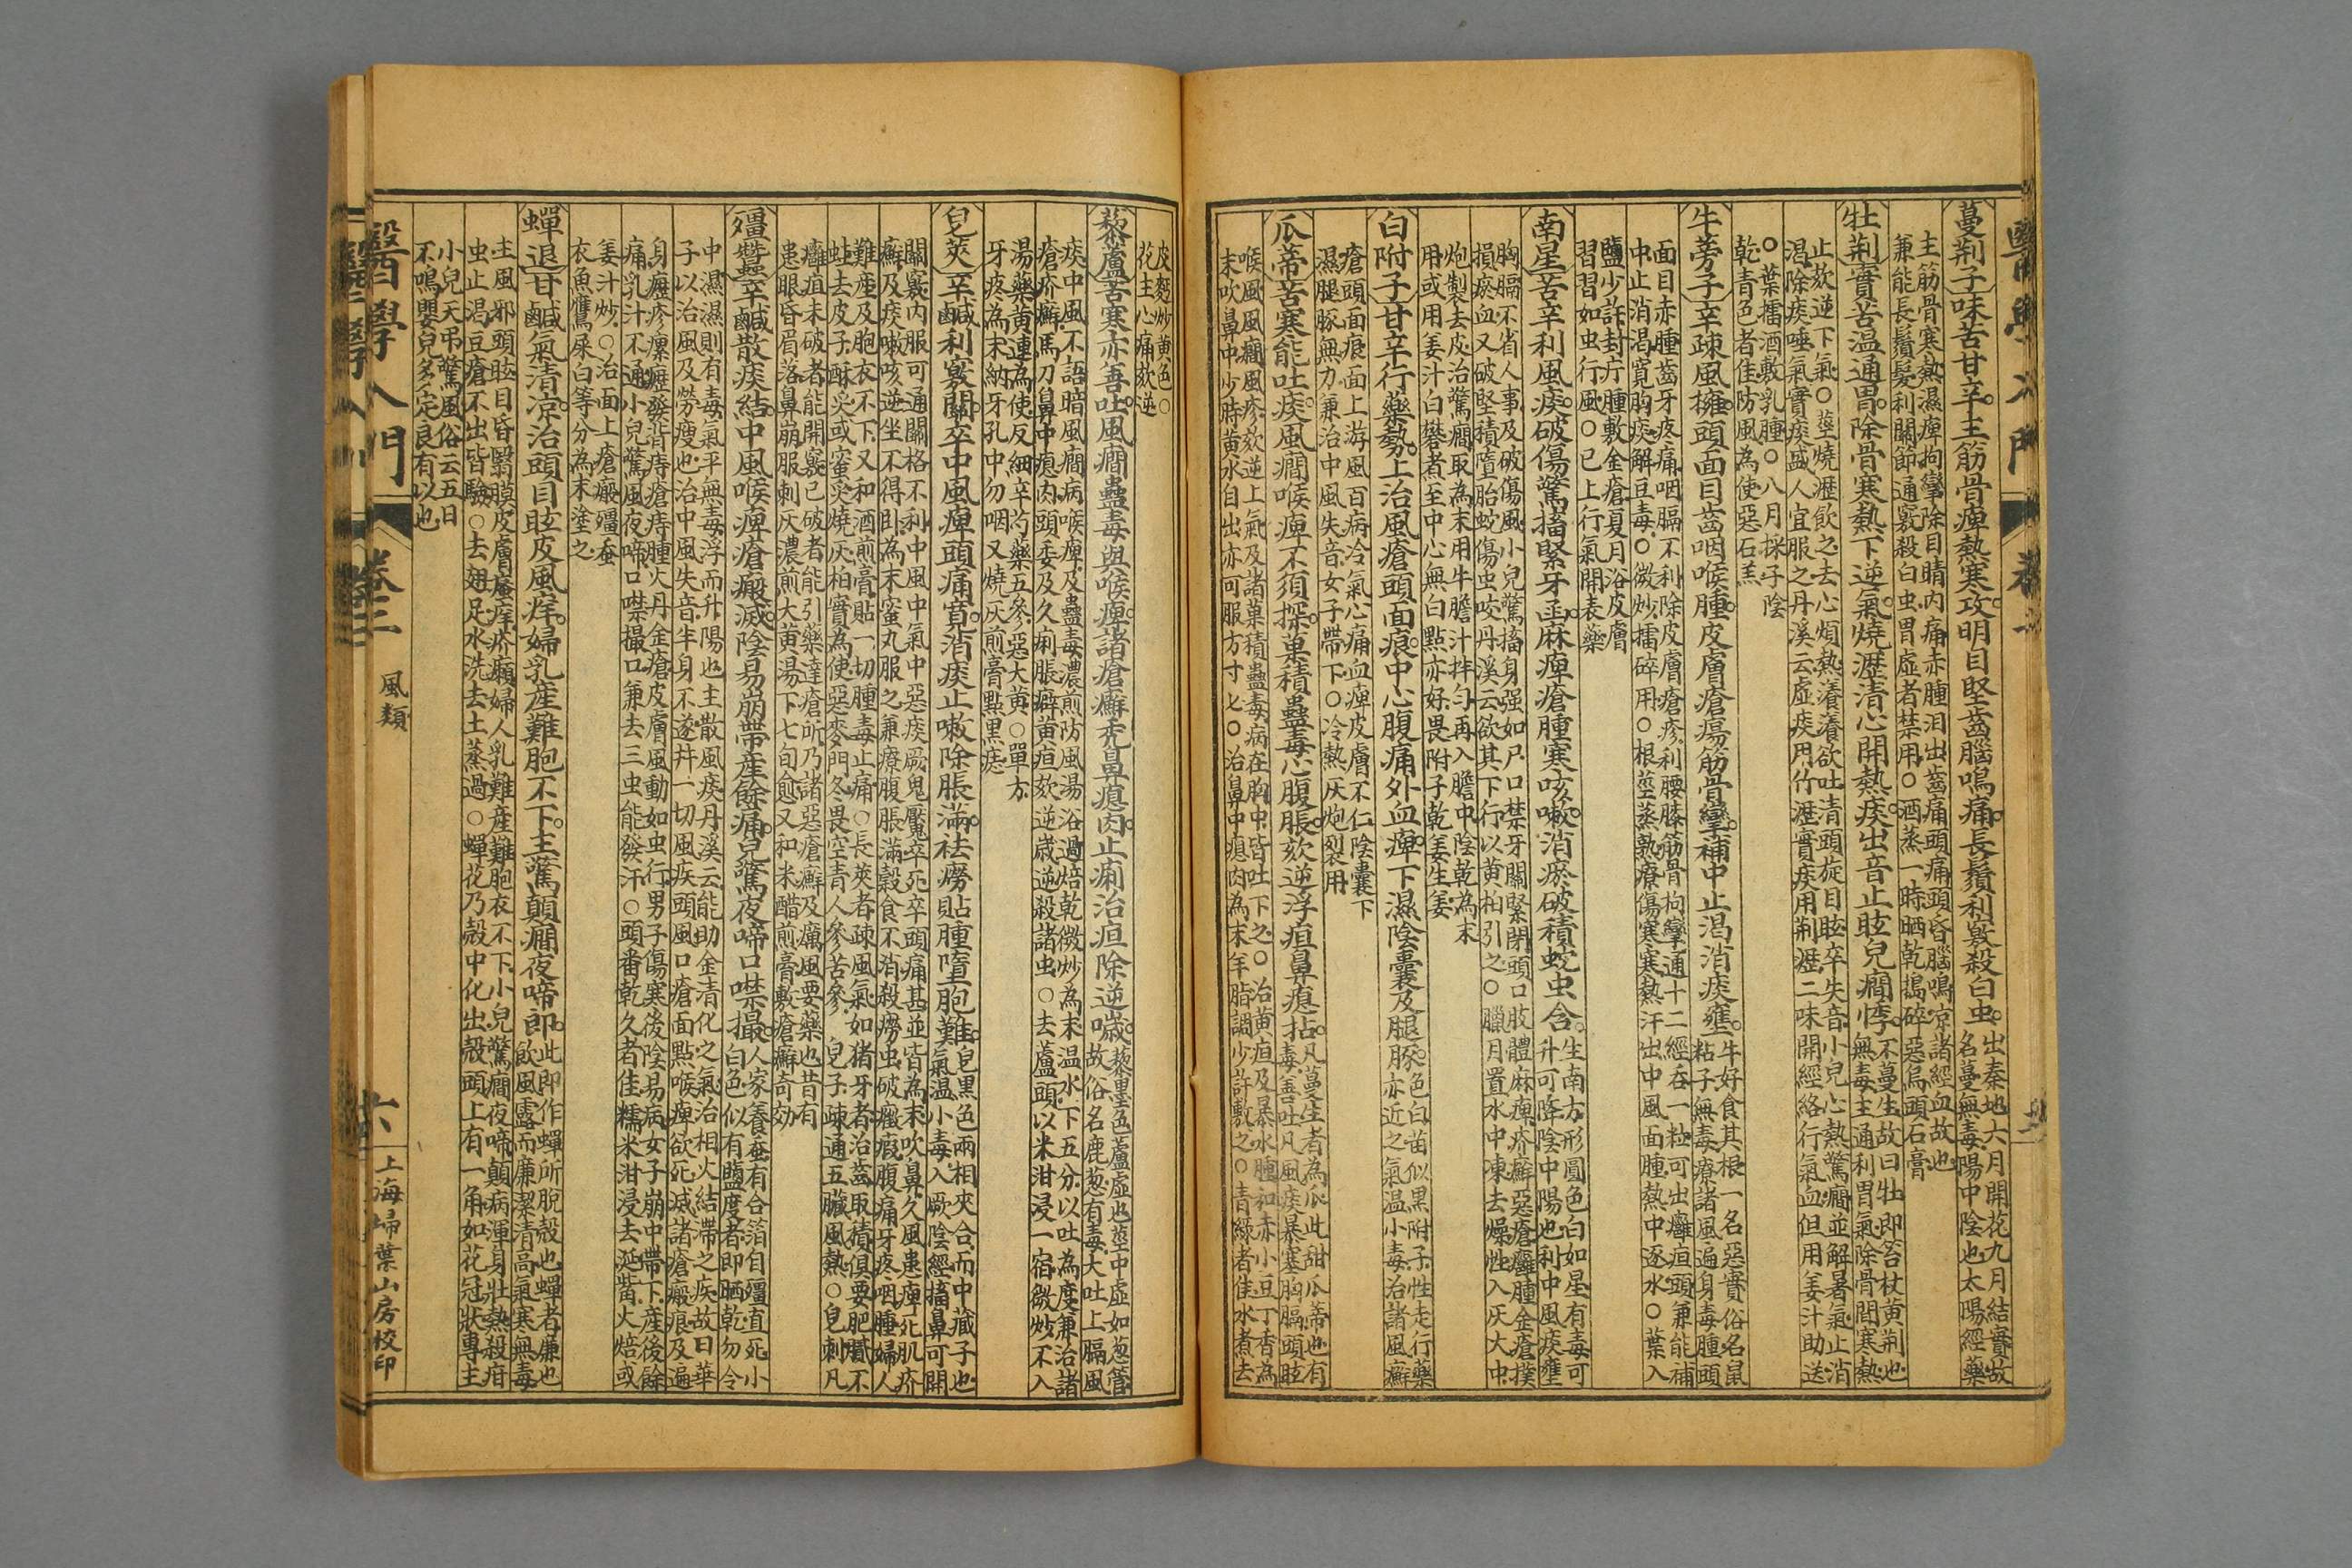 蔓荊子味苦甘辛主筋骨痺熱寒攻明目堅齒腦鳴痛長鬚利竅殺白虫
出秦地六月開花九月結實故
名蔓無毒陽中陰也太陽經藥
主筋骨寒熱濕痺拘攣除目睛内痛赤腫泪出齒痛頭痛頭昏腦鳴凉諸經血故也
兼能長鬚髮利關節通竅殺白虫胃虛者禁用○酒蒸一時晒乾搗碎惡烏頭石膏
牡荊實苦温通胃除骨寒熱下逆氣燒瀝清心開熱痰出音止眩兒癎悸
不蔓生故曰牡即笞杖黄荊也
無毒主通利胃氣除骨間寒熱
止欬逆下氣○莖燒瀝飲之去心煩熱瀁瀁欲吐清頭旋目眩卒失音小兒心熱驚癎並解暑氣止消
渴除痰唾氣實痰盛人宜服之丹溪云虛痰用竹瀝實痰用荊瀝二味開經絡行氣血但用姜汁助送
○葉擂酒敷乳腫○八月採子陰
乾青色者佳防風為使惡石羔
牛蒡子辛疎風擁頭面目齒咽喉腫皮膚瘡瘍筋骨攣補中止渴消痰壅
牛好食其根一名惡實俗名鼠
粘子無毒療諸風遍身毒腫頭
面目赤腫齒牙疼痛咽膈不利除皮膚瘡疹利腰膝筋骨拘攣通十二經吞一粒可出癰疽頭兼能補
中止消渴寛胸痰解豆毒○微炒擂碎用○根莖蒸熟療傷寒寒熱汗出中風面腫熱中逐水○葉入
鹽少許封疔腫敷金瘡夏月浴皮膚
習習如虫行風○已上行氣開表藥
南星苦辛利風痰破傷驚搐緊牙函麻痺瘡腫寒咳嗽消瘀破積蛇虫含
生南方形圓色白如星有毒可
升可降陰中陽也利中風痰壅
胸膈不省人事及破傷風小兒驚搐身强如尸口禁牙關緊閉頭口肢體麻痺疥癬惡瘡癰腫金瘡撲
損瘀血又破堅積墮胎蛇傷虫咬丹溪云欲其下行以黄柏引之○臘月置水中凍去燥性入灰火中
炮製去皮治驚癎取為末用牛膽汁拌匀再入膽中陰乾為末
用或用姜汁白礬煮至中心無白點亦好畏附子乾姜生姜
白附子甘辛行藥勢上治風瘡頭面痕中心腹痛外血痺下濕陰囊及腿豚
色白苗似黑附子性走行藥
亦近之氣温小毒治諸風癬
瘡頭面痕面上游風百病冷氣心痛血痺皮膚不仁陰囊下
濕腿豚無力兼治中風失音女子帶下○冷熱灰炮裂用
瓜蒂苦寒能吐痰風癎喉痺不須探菓積蠱毒心腹脹欬逆浮疸鼻瘜拈
凡蔓生者為瓜此甜瓜蒂也有
毒善吐凡風疾暴塞胸膈頭眩
喉風風癎風疹欬逆上氣及諸菓積蠱毒病在胸中皆吐下之○治黄疸及暴水腫和赤小豆丁香為
末吹鼻中少時黄水自出亦可服方寸七○治鼻中瘜肉為末羊脂調少許敷之○青綠者佳水煮去
皮麫炒黄色○
花主心痛欬逆
藜蘆苦寒亦善吐風癎蠱毒與喉痺諸瘡癬禿鼻瘜肉止痢治疸除逆噦
藜黑色蘆虛也莖中虛如葱管
故俗名鹿葱有毒大吐上膈風
痰中風不語暗風癎病喉痺及蠱毒濃煎防風湯浴過焙乾微炒為末温水下五分以吐為度兼治諸
瘡疥癬馬刀鼻中瘜肉頭委及久痢脹癖黄疸欬逆嵗逆殺諸虫○去蘆頭以米泔浸一宿微炒不入
湯藥黄連為使反細辛芍藥五參惡大黄○單方
牙疼為末納牙孔中勿咽又燒灰煎膏點黑痣
皂莢辛鹹利竅關卒中風痺頭痛寛消痰止嗽除脹滿祛癆貼腫墮胞難
皂黑色兩相夾合而中藏子也
氣温小毒入厥陰經搐鼻可開
關竅内服可通關格不利中風中氣中惡痰厥鬼魘卒死卒頭痛甚並皆為末吹鼻久風患痺死肌疥
癬及痰嗽咳逆坐不得卧為末蜜丸服之兼療腹脹滿穀食不消殺癆虫破癥瘕腹痛牙疼咽腫婦人
難産及胞衣不下又和酒煎膏貼一切腫毒止痛○長莢者疎風氣如猪牙者治齒取積俱要肥膩不
蛀去皮子酥炙或蜜炙燒灰柏實為使惡麥門冬畏空青人參苦參○皂子疎通五臟風熱○皂刺凡
癰疽未破者能開竅已破者能引藥達瘡所乃諸惡瘡癬及厲風要藥也昔有
患眼昏眉落鼻崩服刺灰濃煎大黄湯下七旬愈又和米醋煎膏敷瘡癬奇効
殭蠶辛鹹散痰結中風喉痺瘡瘢滅陰易崩帶産餘痛兒驚夜啼口噤撮
人家養蚕有合箔自殭直死小
白色似有鹽度者即晒乾勿令
中濕濕則有毒氣平無毒浮而升陽也主散風痰丹溪云能助金清化之氣治相火結滯之疾故曰華
子以治風及勞瘦也治中風失音半身不遂并一切風疾頭風口瘡面點喉痺欲死滅諸瘡瘢痕及遍
身癮疹瘰癧發背痔瘡痔腫火丹金瘡皮膚風動如虫行男子傷寒後陰易病女子崩中帶下産後餘
痛乳汁不通小兒驚風夜啼口噤撮口兼去三虫能發汗○頭番乾久者佳糯米泔浸去涎觜火焙或
姜汁炒○治面上瘡瘢殭蚕
衣魚鷹屎白等分為末塗之
蟬退甘鹹氣清凉治頭目眩皮風痒婦乳産難胞不下主驚顛癎夜啼郎
此即作蟬所脫殼也蟬者廉也
飲風露而廉潔清高氣寒無毒
主風邪頭眩目昏翳膜皮膚瘙痒疥癩婦人乳難産難胞衣不下小兒驚癎夜啼顛病渾身壯熱殺疳
虫止渴豆瘡不出皆驗○去翅足水洗去土蒸過○蟬花乃殼中化出殼頭上有一角如花冠狀專主
小兒天弔驚風俗云五日
不鳴嬰兒多灾良有以也
醫學入門 卷三 風類 六 上海埽葉山房校印